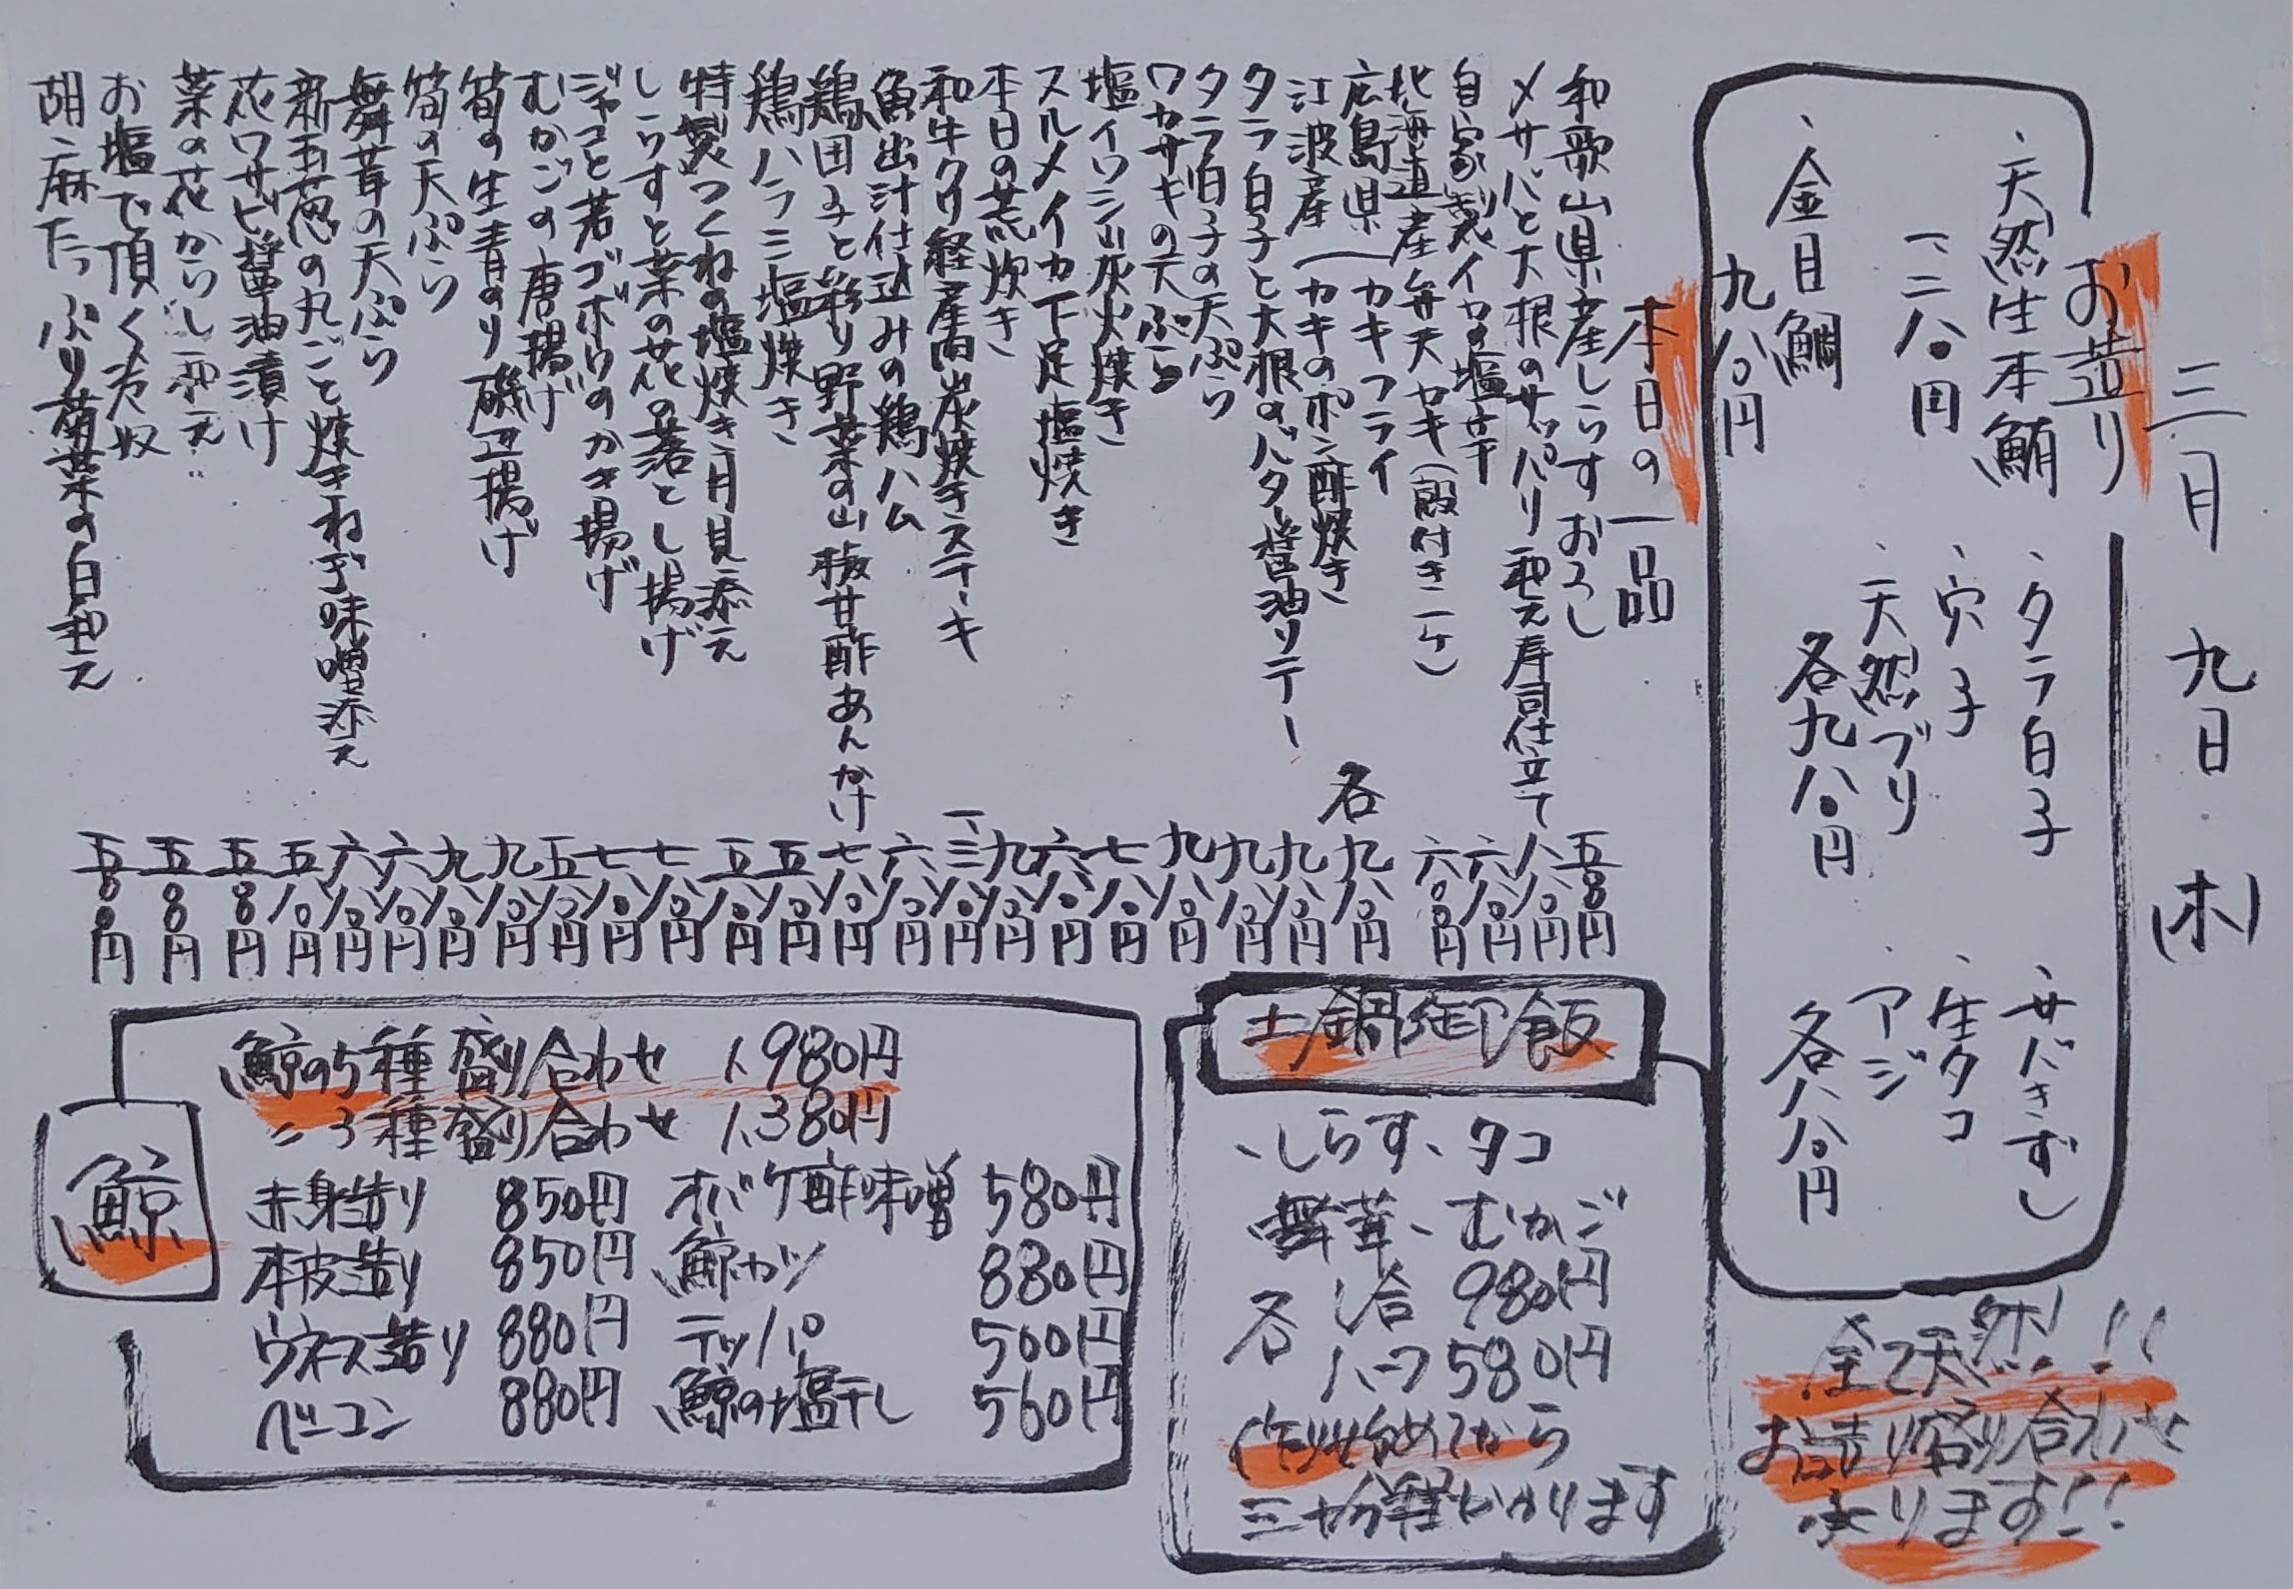 三月九日(木)
お造り
、天然生本鮪
一、二八〇円
、金目鯛
九八〇円
、タラ白子
、穴子
、天然ブリ
各九八〇円
、サバきずし
、生タコ
、アジ
各八八〇円
全て天然!!!
お造り盛り合わせ
承ります!!
本日の一品
和歌山県産しらすおろし 五八〇円
〆サバと大根のサッパリ和え寿司仕立て 八八〇円
自家製イカの塩辛 六八〇円
北海道産弁天カキ(殻付き一ケ) 六八〇円
広島県 カキフライ
江波産 カキのポン酢焼き 各九八〇円
タラ白子と大根のバター醤油ソテー 九八〇円
タラ白子の天ぷら 九八〇円
ワカサギの天ぷら 九八〇円
塩イワシ炭火焼き 七八〇円
スルメイカ下足塩焼き 六八〇円
本日の荒炊き 九八〇円
和牛クリ経産肉炭焼きステーキ 一、三八〇円
魚出汁仕込みの鶏ハム 六八〇円
鶏団子と彩り野菜の山椒甘酢あんかけ 七八〇円
鶏ハラミ塩焼き 五八〇円
特製つくねの塩焼き月見添え 五八〇円
しらすと菜の花の落とし揚げ 七八〇円
ジャコと若ゴボウのかき揚げ 七八〇円
むかごの唐揚げ 五八〇円
筍の生青のり磯辺揚げ 九八〇円
筍の天ぷら 九八〇円
舞茸の天ぷら 六八〇円
新玉葱の丸ごと焼きねぎ味噌添え 六八〇円
花ワサビ醤油漬け 五八〇円
菜の花からし和え 五八〇円
お塩で頂く冷奴 五八〇円
胡麻たっぷり菊菜の白和え 五八〇円
土鍋御飯
、しらす、タコ
舞茸、むかご
各 一合 980円
ハーフ 580円
作り始めてから
三十分程かかります
鯨
鯨の5種盛り合わせ 1,980円
〃 3種盛り合わせ 1,380円
赤身造り 850円
本皮造り 850円
ウネス造り 880円
ベーコン 880円
オバケ酢味噌 580円
鯨カツ 880円
テッパ 500円
鯨の塩干し 560円